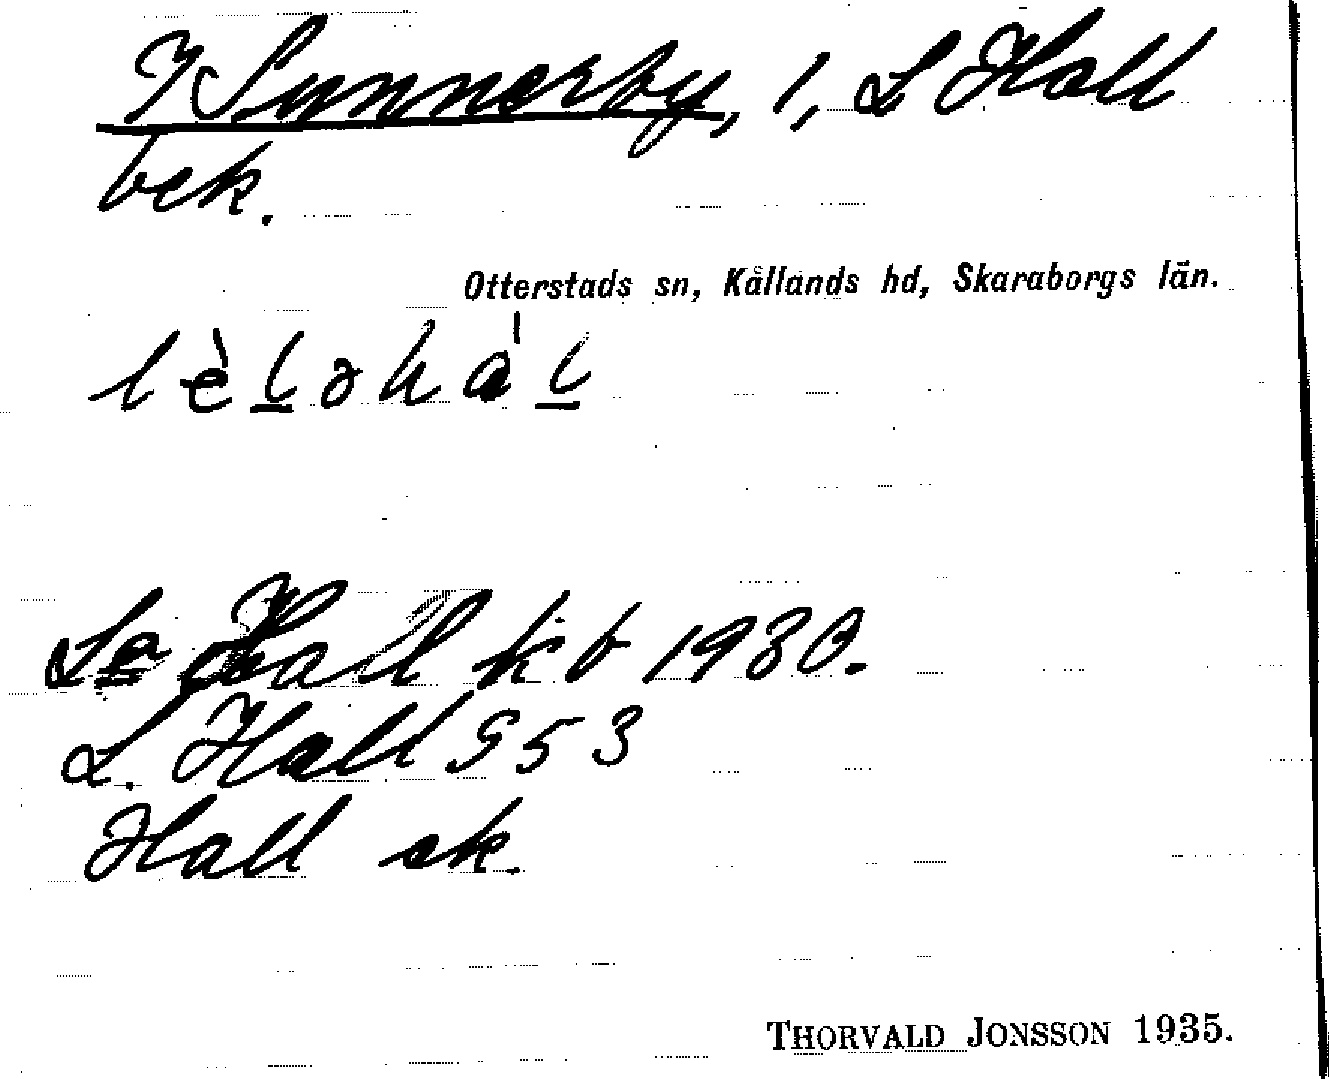 I Sunnerby, 1, L Hall
bek.
Otterstads sn, Kållands hd, Skaraborgs län.
lèləhàl
La Hall kb 1930.
L. Hall S 53
Hall ek.
THORVALD JONSSON 1935.